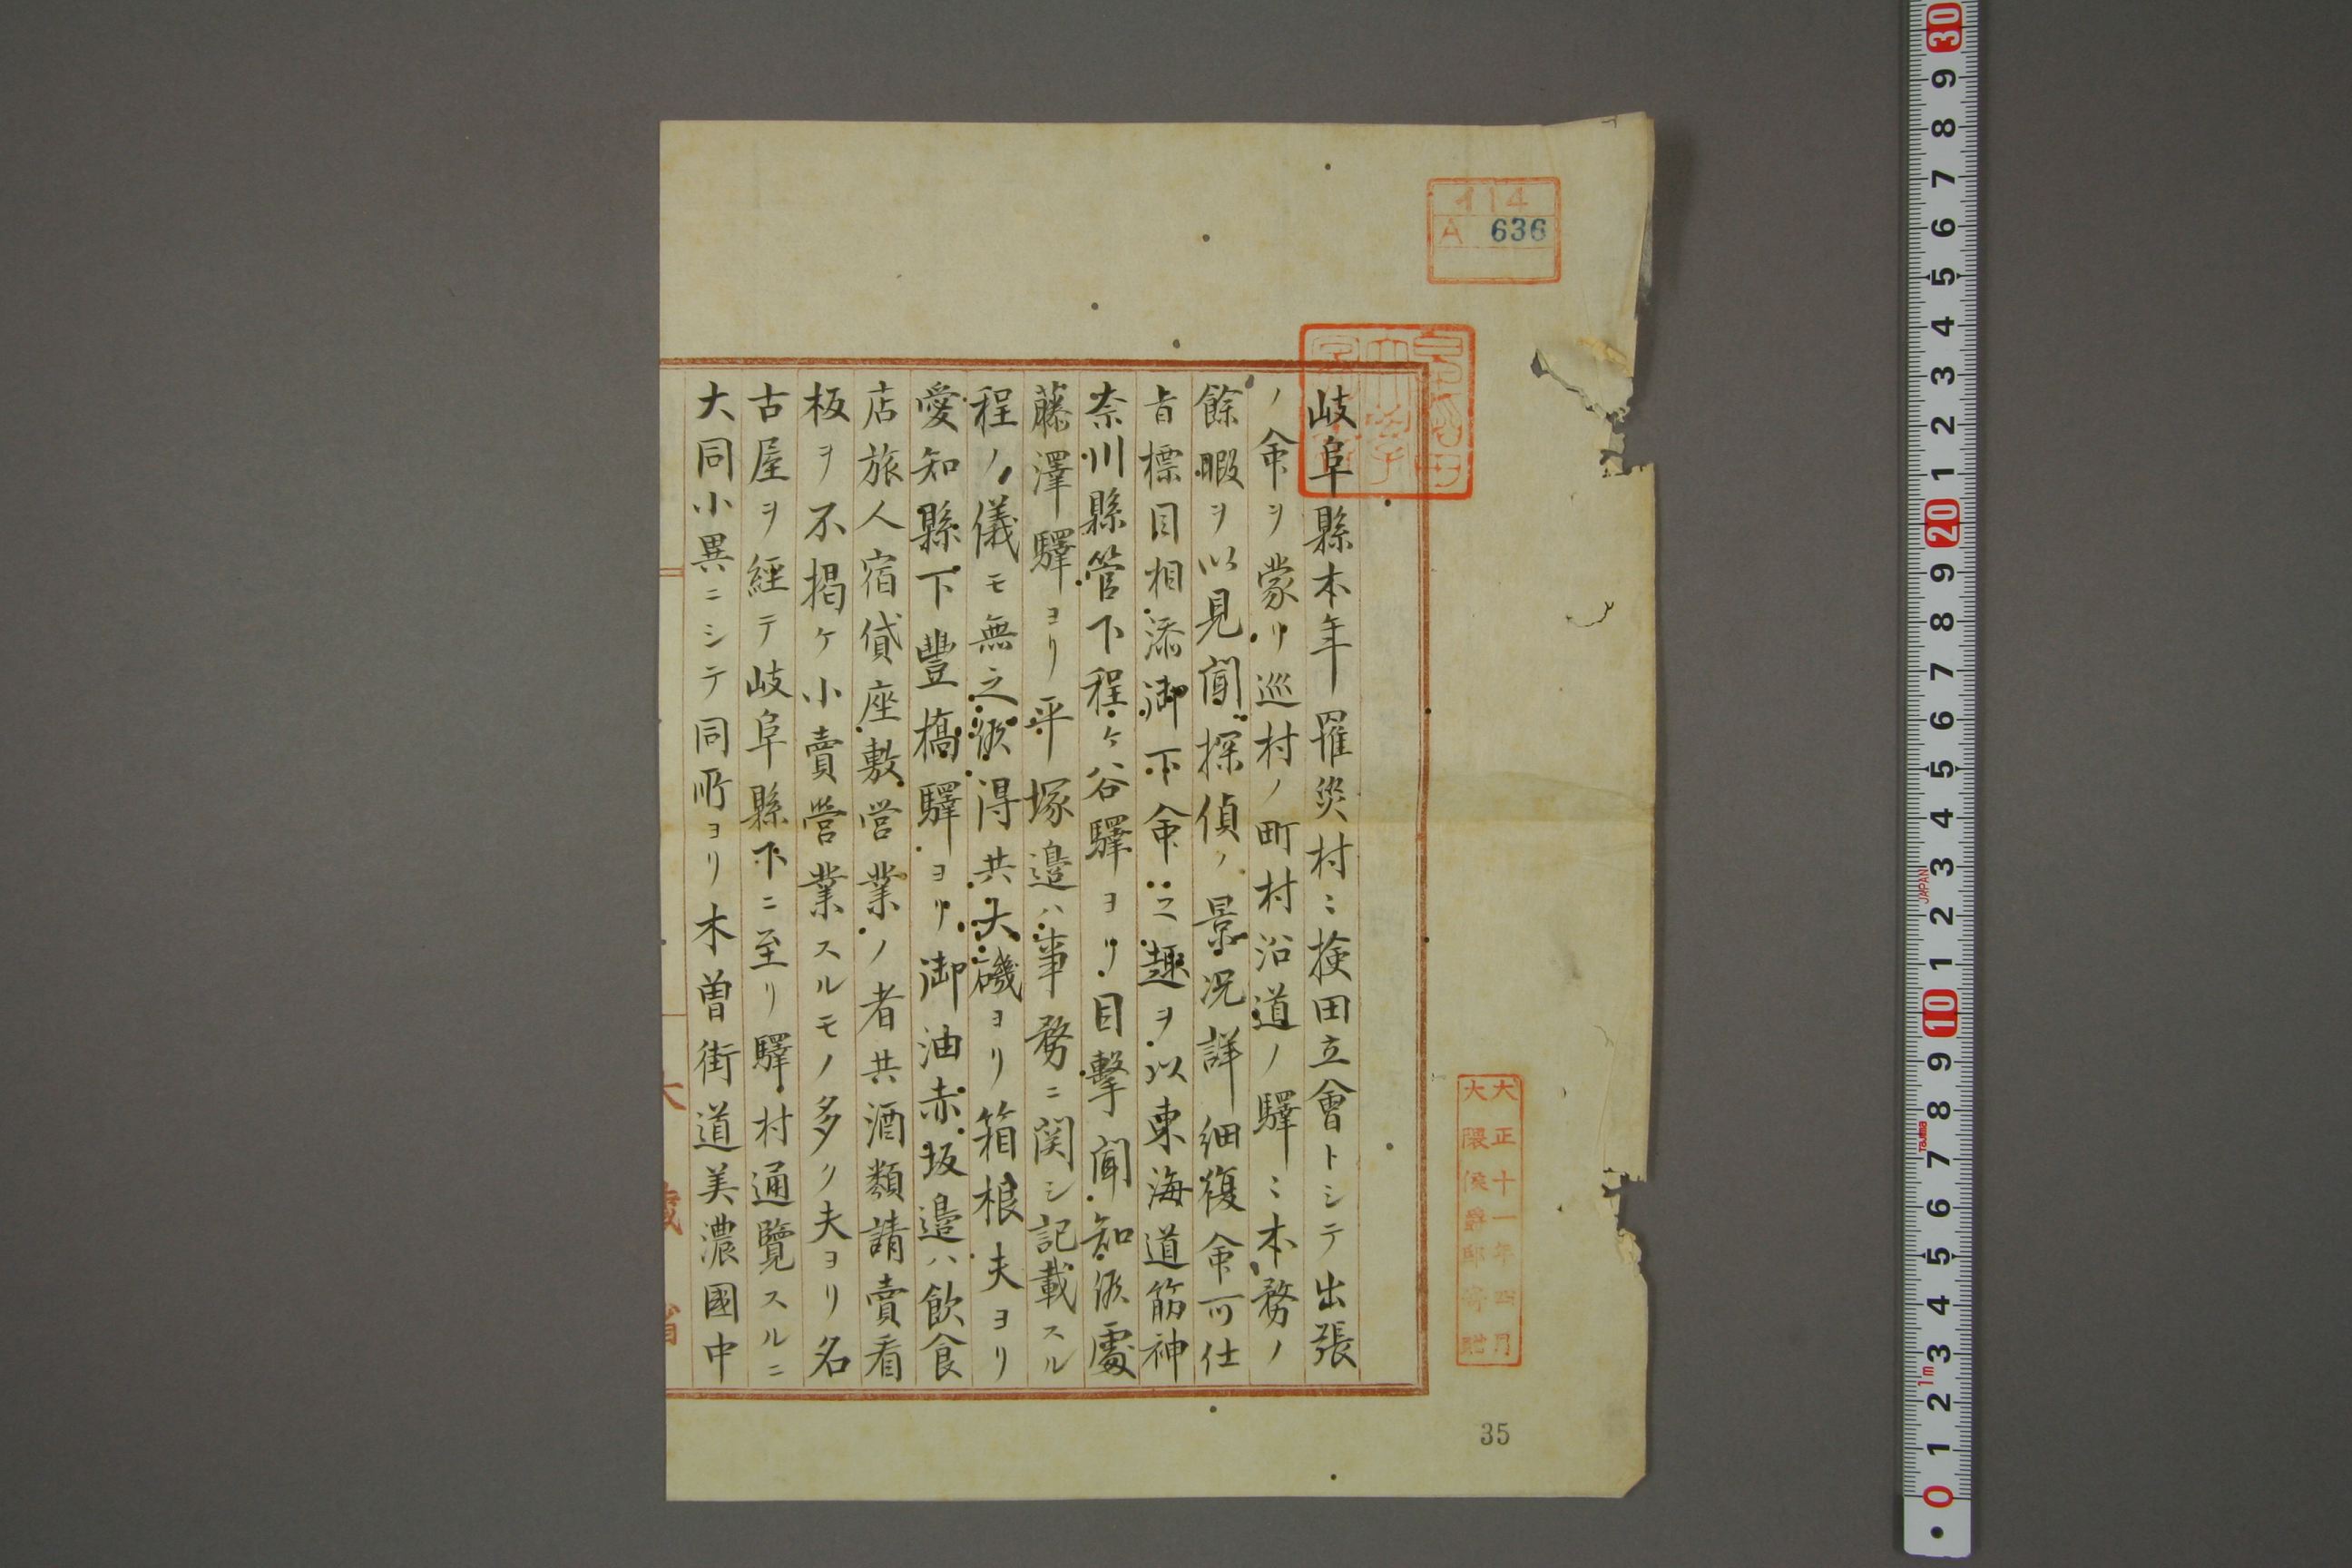 イ14
A 636
早稲田
大學
大正十一年四月
大隈侯爵邸寄贈
岐阜縣本年罹災村ニ検田立會トシテ出張
ノ命ヲ蒙リ巡村ノ町村沿道ノ驛ニ本務ノ
餘暇ヲ以見聞探偵ノ景況詳細復命可仕
旨標目相添御下命ニ趣ヲ以東海道筋神
奈川縣管下程ヶ谷驛ヨリ目撃聞知候處
藤澤驛ヨリ平塚邉ハ事務ニ関シ記載スル
程ノ儀モ無之候得共大磯ヨリ箱根夫ヨリ
愛知縣下豊橋驛ヨリ御油赤坂邉ハ飲食
店旅人宿貸座敷営業ノ者共酒類請賣看
板ヲ不掲ケ小賣営業スルモノ多ク夫ヨリ名
古屋ヲ經テ岐阜縣下ニ至リ驛村通覽スルニ
大同小異ニシテ同所ヨリ木曽街道美濃國中
大藏省
35
30 9 8 7 6 5 4 3 2 1 20 9 8 7 6 5 4 3 2 1 10 9 8 7 6 5 4 3 2 1 0
JAPAN
TAJIMA
1m